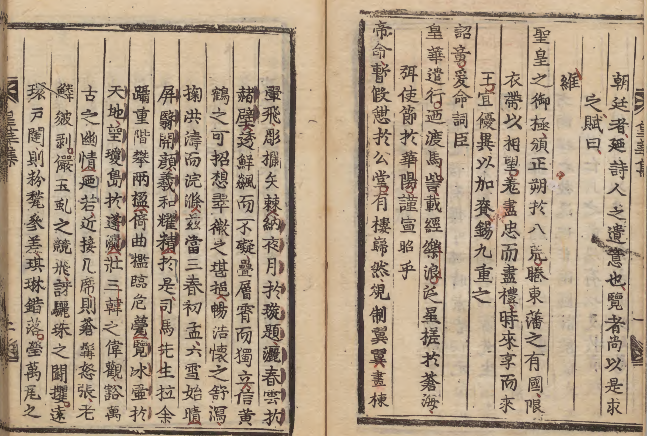 朝廷者廼詩人之遺意也覽者尚以是求
之賦曰
維
聖皇之御極頒正朔於八荒睠東藩之有國限
衣帶以相望羌盡忠而盡禮時來享而來
王宜優異以加賚錫九重之
詔章爰命詞臣
皇華遣行迺渡馬訾載經樂浪泛星槎扵蒼海
弭使節扵華陽謹宣昭乎
帝命暫假憇扵公堂有樓巋然䂓制翼翼畫棟
翬飛彫榱矢棘納夜月扵璇題灑春雲扵
赭壁逵鮮飆而不礙疊層霄而獨立信黃
鶴之可招想翠微之堪挹暢浩懷之舒瀉
掬洪濤而浣滌茲當三春初孟六雪始晴
屏翳開顏羲和耀精扵是司馬先生拉余
躡重階攀兩楹倚曲檻臨危甍覽冰壺扵
天地望瓊島扵蓬瀛壯三韓之偉觀豁萬
古之幽情廼若近接几席則蒼髯怒張老
鱗皴剝儼玉虬之競飛訝驪珠之鬪攫遠
環戶闥則粉甃參差琪琳錯落瑩萬瓦之
皇華集